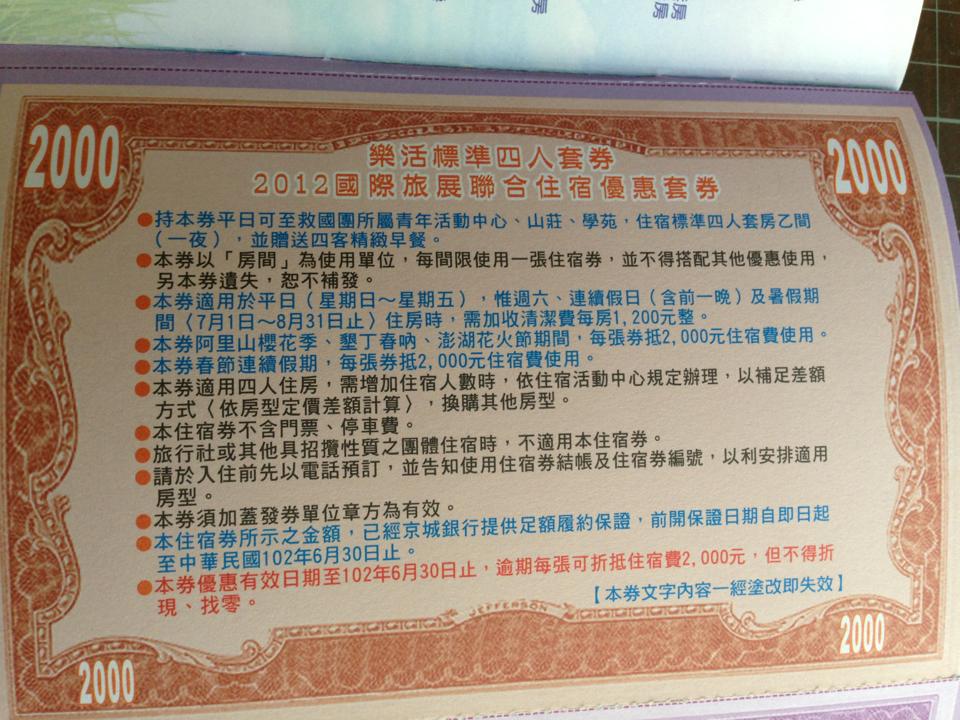 房
房
房
2000
2000
樂活標準四人套券
2012國際旅展聯合住宿優惠套券
●持本券平日可至救國團所屬青年活動中心、山莊、學苑，住宿標準四人套房乙間
（一夜），並贈送四客精緻早餐。
●本券以「房間」為使用單位，每間限使用一張住宿券，並不得搭配其他優惠使用，
另本券遺失，恕不補發。
●本券適用於平日（星期日～星期五），惟週六、連續假日（含前一晚）及暑假期
間〈7月1日～8月31日止〉住房時，需加收清潔費每房1,200元整。
●本券阿里山櫻花季、墾丁春吶、澎湖花火節期間，每張券抵2,000元住宿費使用。
●本券春節連續假期，每張券抵2,000元住宿費使用。
●本券適用四人住房，需增加住宿人數時，依住宿活動中心規定辦理，以補足差額
方式〈依房型定價差額計算〉，換購其他房型。
●本住宿券不含門票、停車費。
●旅行社或其他具招攬性質之團體住宿時，不適用本住宿券。
●請於入住前先以電話預訂，並告知使用住宿券結帳及住宿券編號，以利安排適用
房型。
●本券須加蓋發券單位章方為有效。
●本住宿券所示之金額，已經京城銀行提供足額履約保證，前開保證日期自即日起
至中華民國102年6月30日止。
●本券優惠有效日期至102年6月30日止，逾期每張可折抵住宿費2,000元，但不得折
現、找零。
【本券文字內容一經塗改即失效】
JEFFERSON
2000
2000